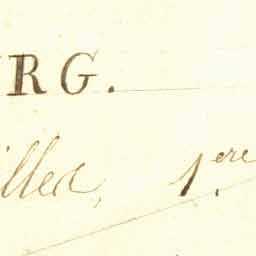 URG.
illed, 1.ere